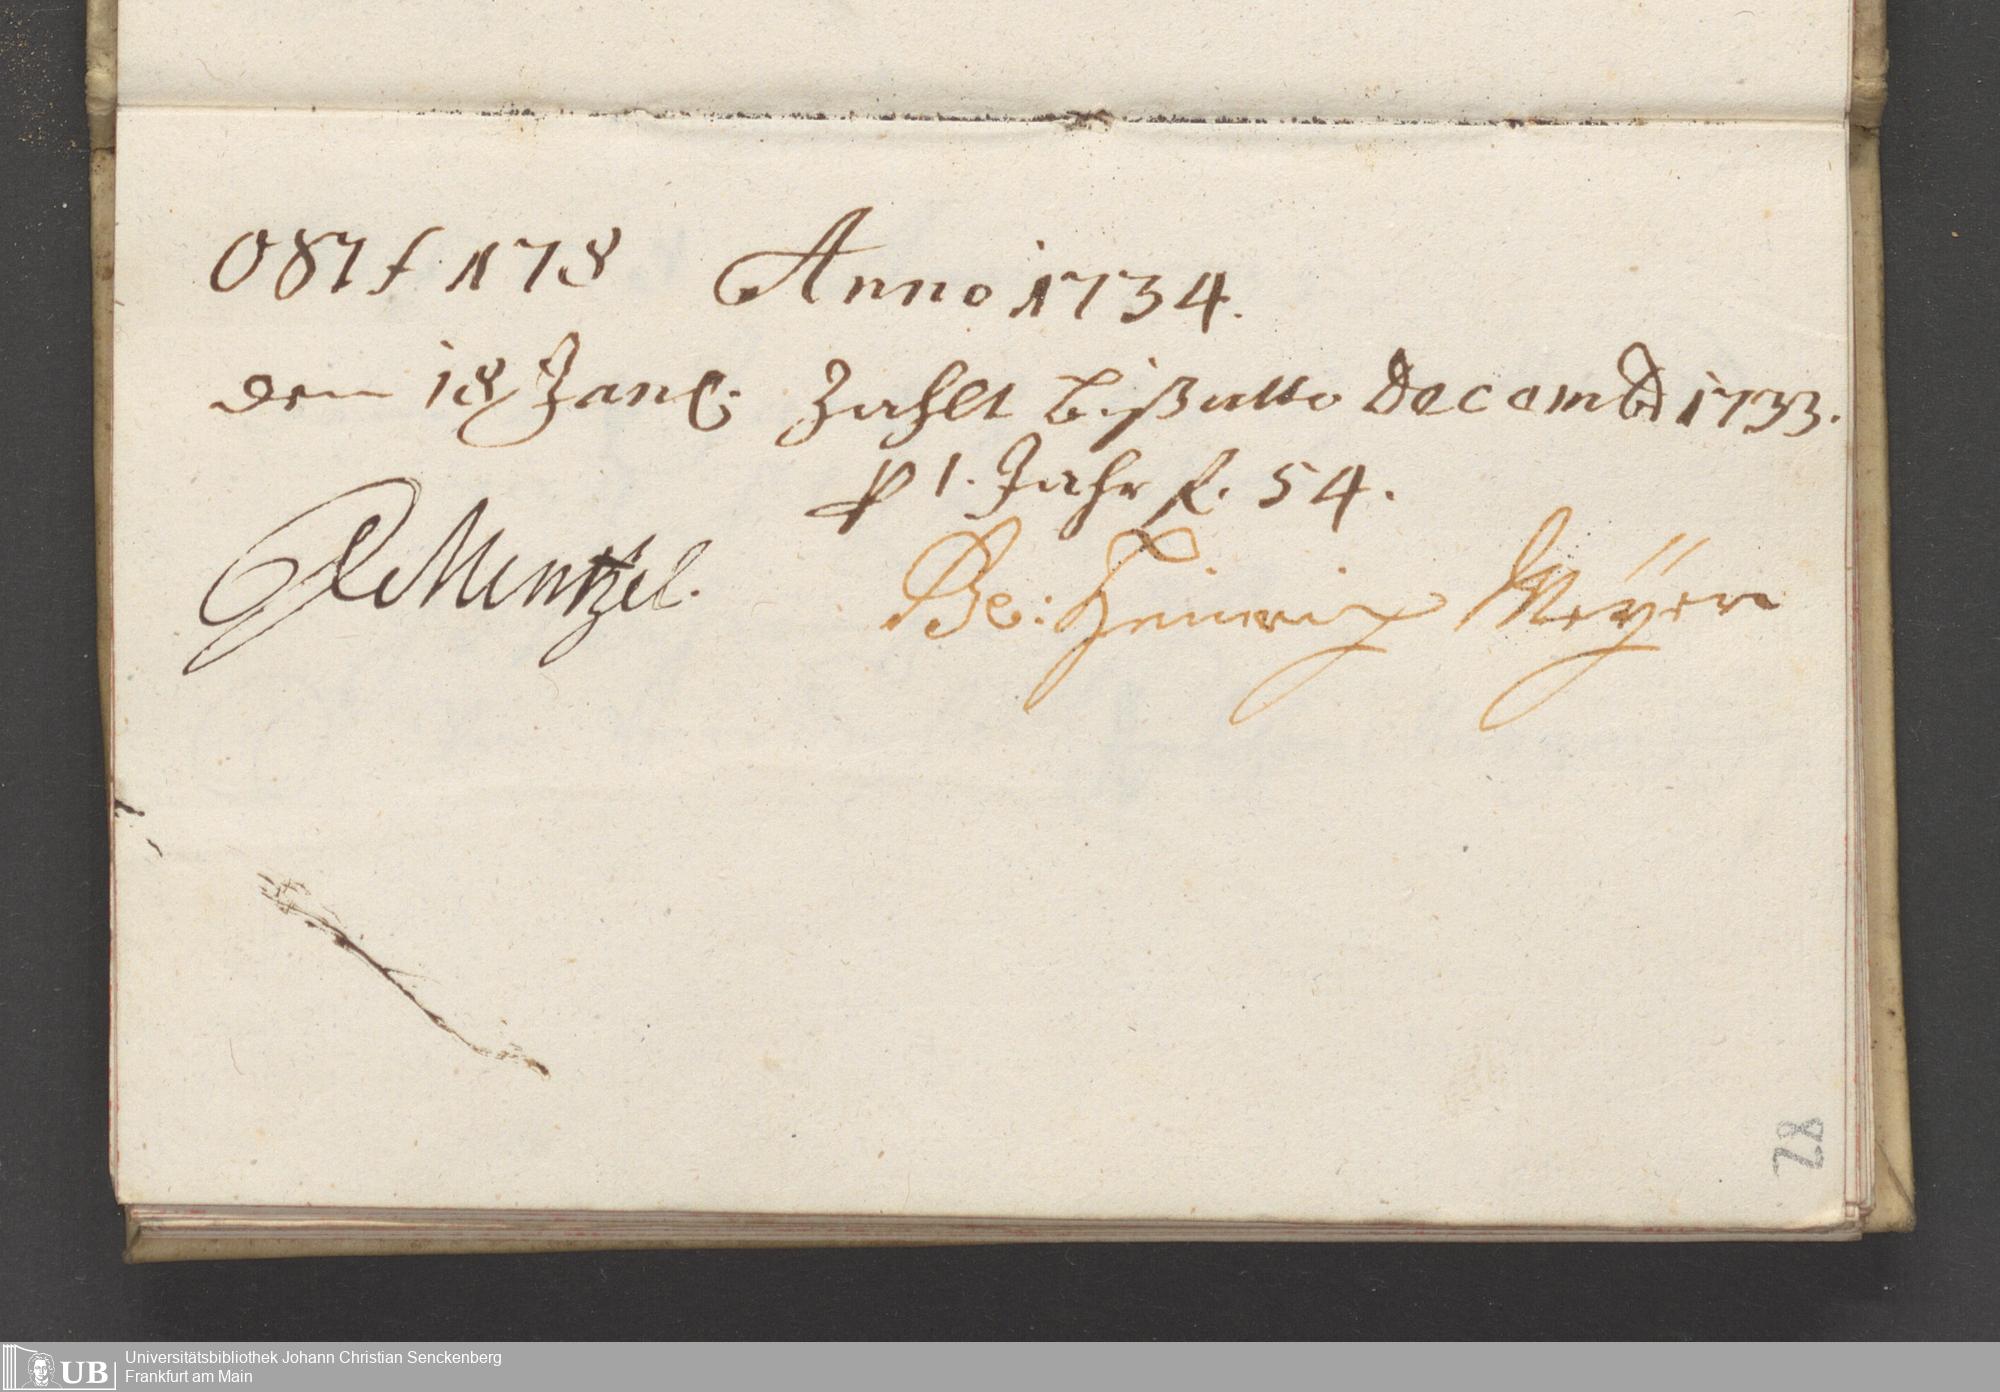 087 f. 178 Anno 1734.
den 18 Janr: Zahlt bißulto Decemb 1733.
ꝑ 1. Jahr f. 54.
Mentzel.
Be: Heinrich Meyer
28
UB
Universitätsbibliothek Johann Christian Senckenberg
Frankfurt am Main